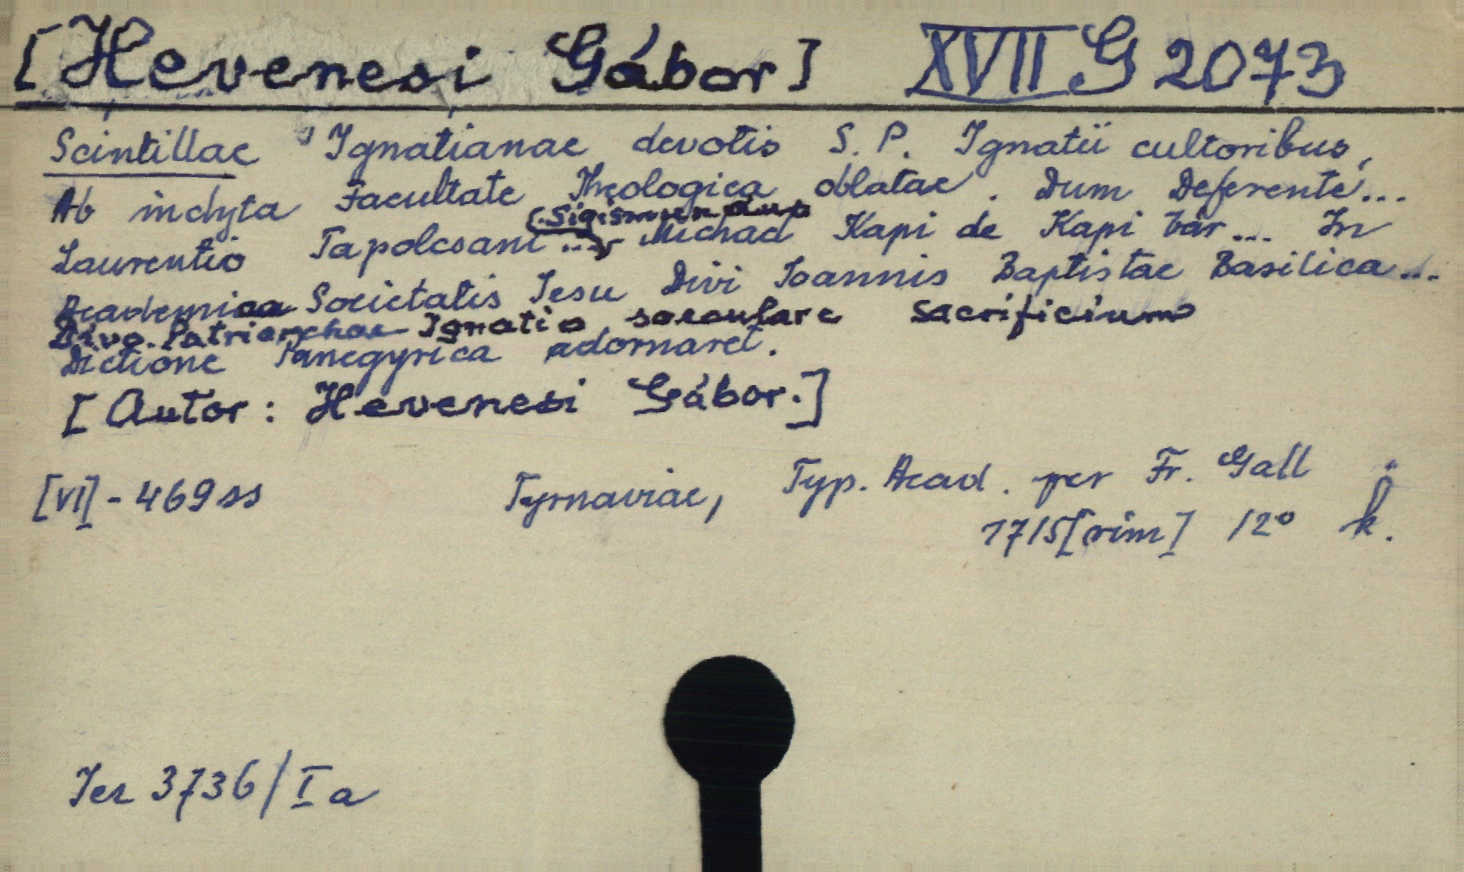 [Hevenesi Gábor] XVII G 2073
Scintillae Ignatianae devotis S. P. Ignatii cultoribus,
Ab inclyta Facultate Theologica oblatae. Dum Deferente...
(.Sigismundus
Laurentio Tapolcsani ... Michael Kapi de Kapi Vár... In
Academica Societatis Iesu Divi Ioannis Baptistae Basilica...
Divo. Patriarchae Ignatio saeculare Sacrificium
Dictione Panegyrica adornaret.
[Autor: Hevenesi Gábor.]
[VI] - 469 ss Tyrnaviae, Typ. Acad. per Fr. Gall
1715 [rim] 12° k.
Jes 3736/I a